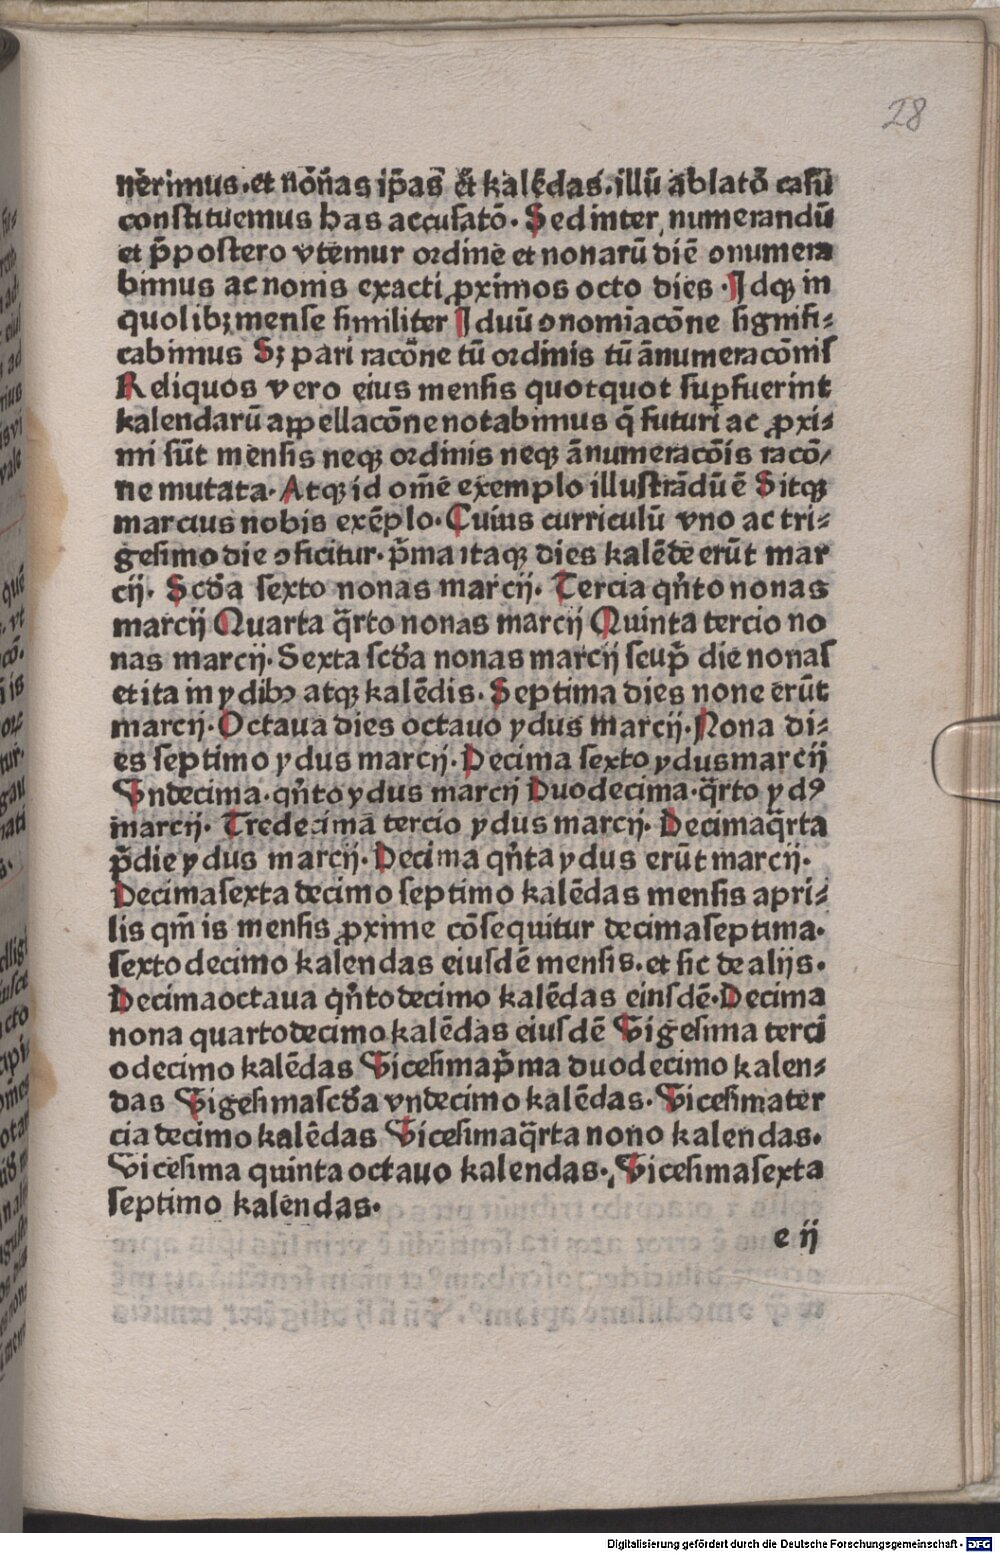 28
nerimus. et nōnas ip̄as et kalēdas. illū ablatō casū
constituemus has accusatō. Sed inter numerandū
et p̄postero vtemur ordine et nonarū diē ꝯnumera
bimus ac nonis exacti ꝓximos octo dies. Idqꝫ in
quolibꝫ mense similiter Iduū ꝯnomīacōne signifi⸗
cabimus Sꝫ pari racōne tū ordinis tū ānumeracōnis
Reliquos vero eius mensis quotquot supfuerint
kalendarū appellacōne notabimus q̄ futuri ac ꝓxi⸗
mi sūt mensis neqꝫ ordinis neqꝫ ānumeracōis racō/
ne mutata. Atqꝫ id om̄e exemplo illustrādū ē Sitqꝫ
marcius nobis exēplo. Cuius curriculū vno ac tri⸗
gesimo die ꝯficitur. p̄ma itaqꝫ dies kalēde erūt mar
cij. Scd̄a sexto nonas marcij. Tercia qn̄to nonas
marcij Quarta q̄rto nonas marcij Quinta tercio no
nas marcij. Sexta scd̄a nonas marcij seu p̄die nonas
et ita in ydibꝰ atqꝫ kalēdis. Septima dies none erūt
marcij. Octaua dies octauo ydus marcij. Nona di⸗
es septimo ydus marcij. Decima sexto ydus marcij
Vndecima. qn̄to ydus marcij Duodecima. q̄rto ydꝰ
marcij. Tredecima tercio ydus marcij. Decimaq̄rta
p̄die ydus marcij. Decima qn̄ta ydus erūt marcij.
Decimasexta decimo septimo kalēdas mensis apri⸗
lis qm̄ is mensis ꝓxime cōsequitur decimaseptima.
sexto decimo kalendas eiusdē mensis. et sic de alijs.
Decimaoctaua qn̄todecimo kalēdas einsdē. Decima
nona quartodecimo kalēdas eiusdē Vigesima terci
odecimo kalēdas Vicesimap̄ma duodecimo kalen⸗
das Vigesimascd̄a vndecimo kalēdas. Vicesimater
cia decimo kalēdas Vicesimaq̄rta nono kalendas.
Vicesima quinta octauo kalendas. Vicesimasexta
septimo kalendas.
e ij
Digitalisierung gefördert durch die Deutsche Forschungsgemeinschaft - DFG